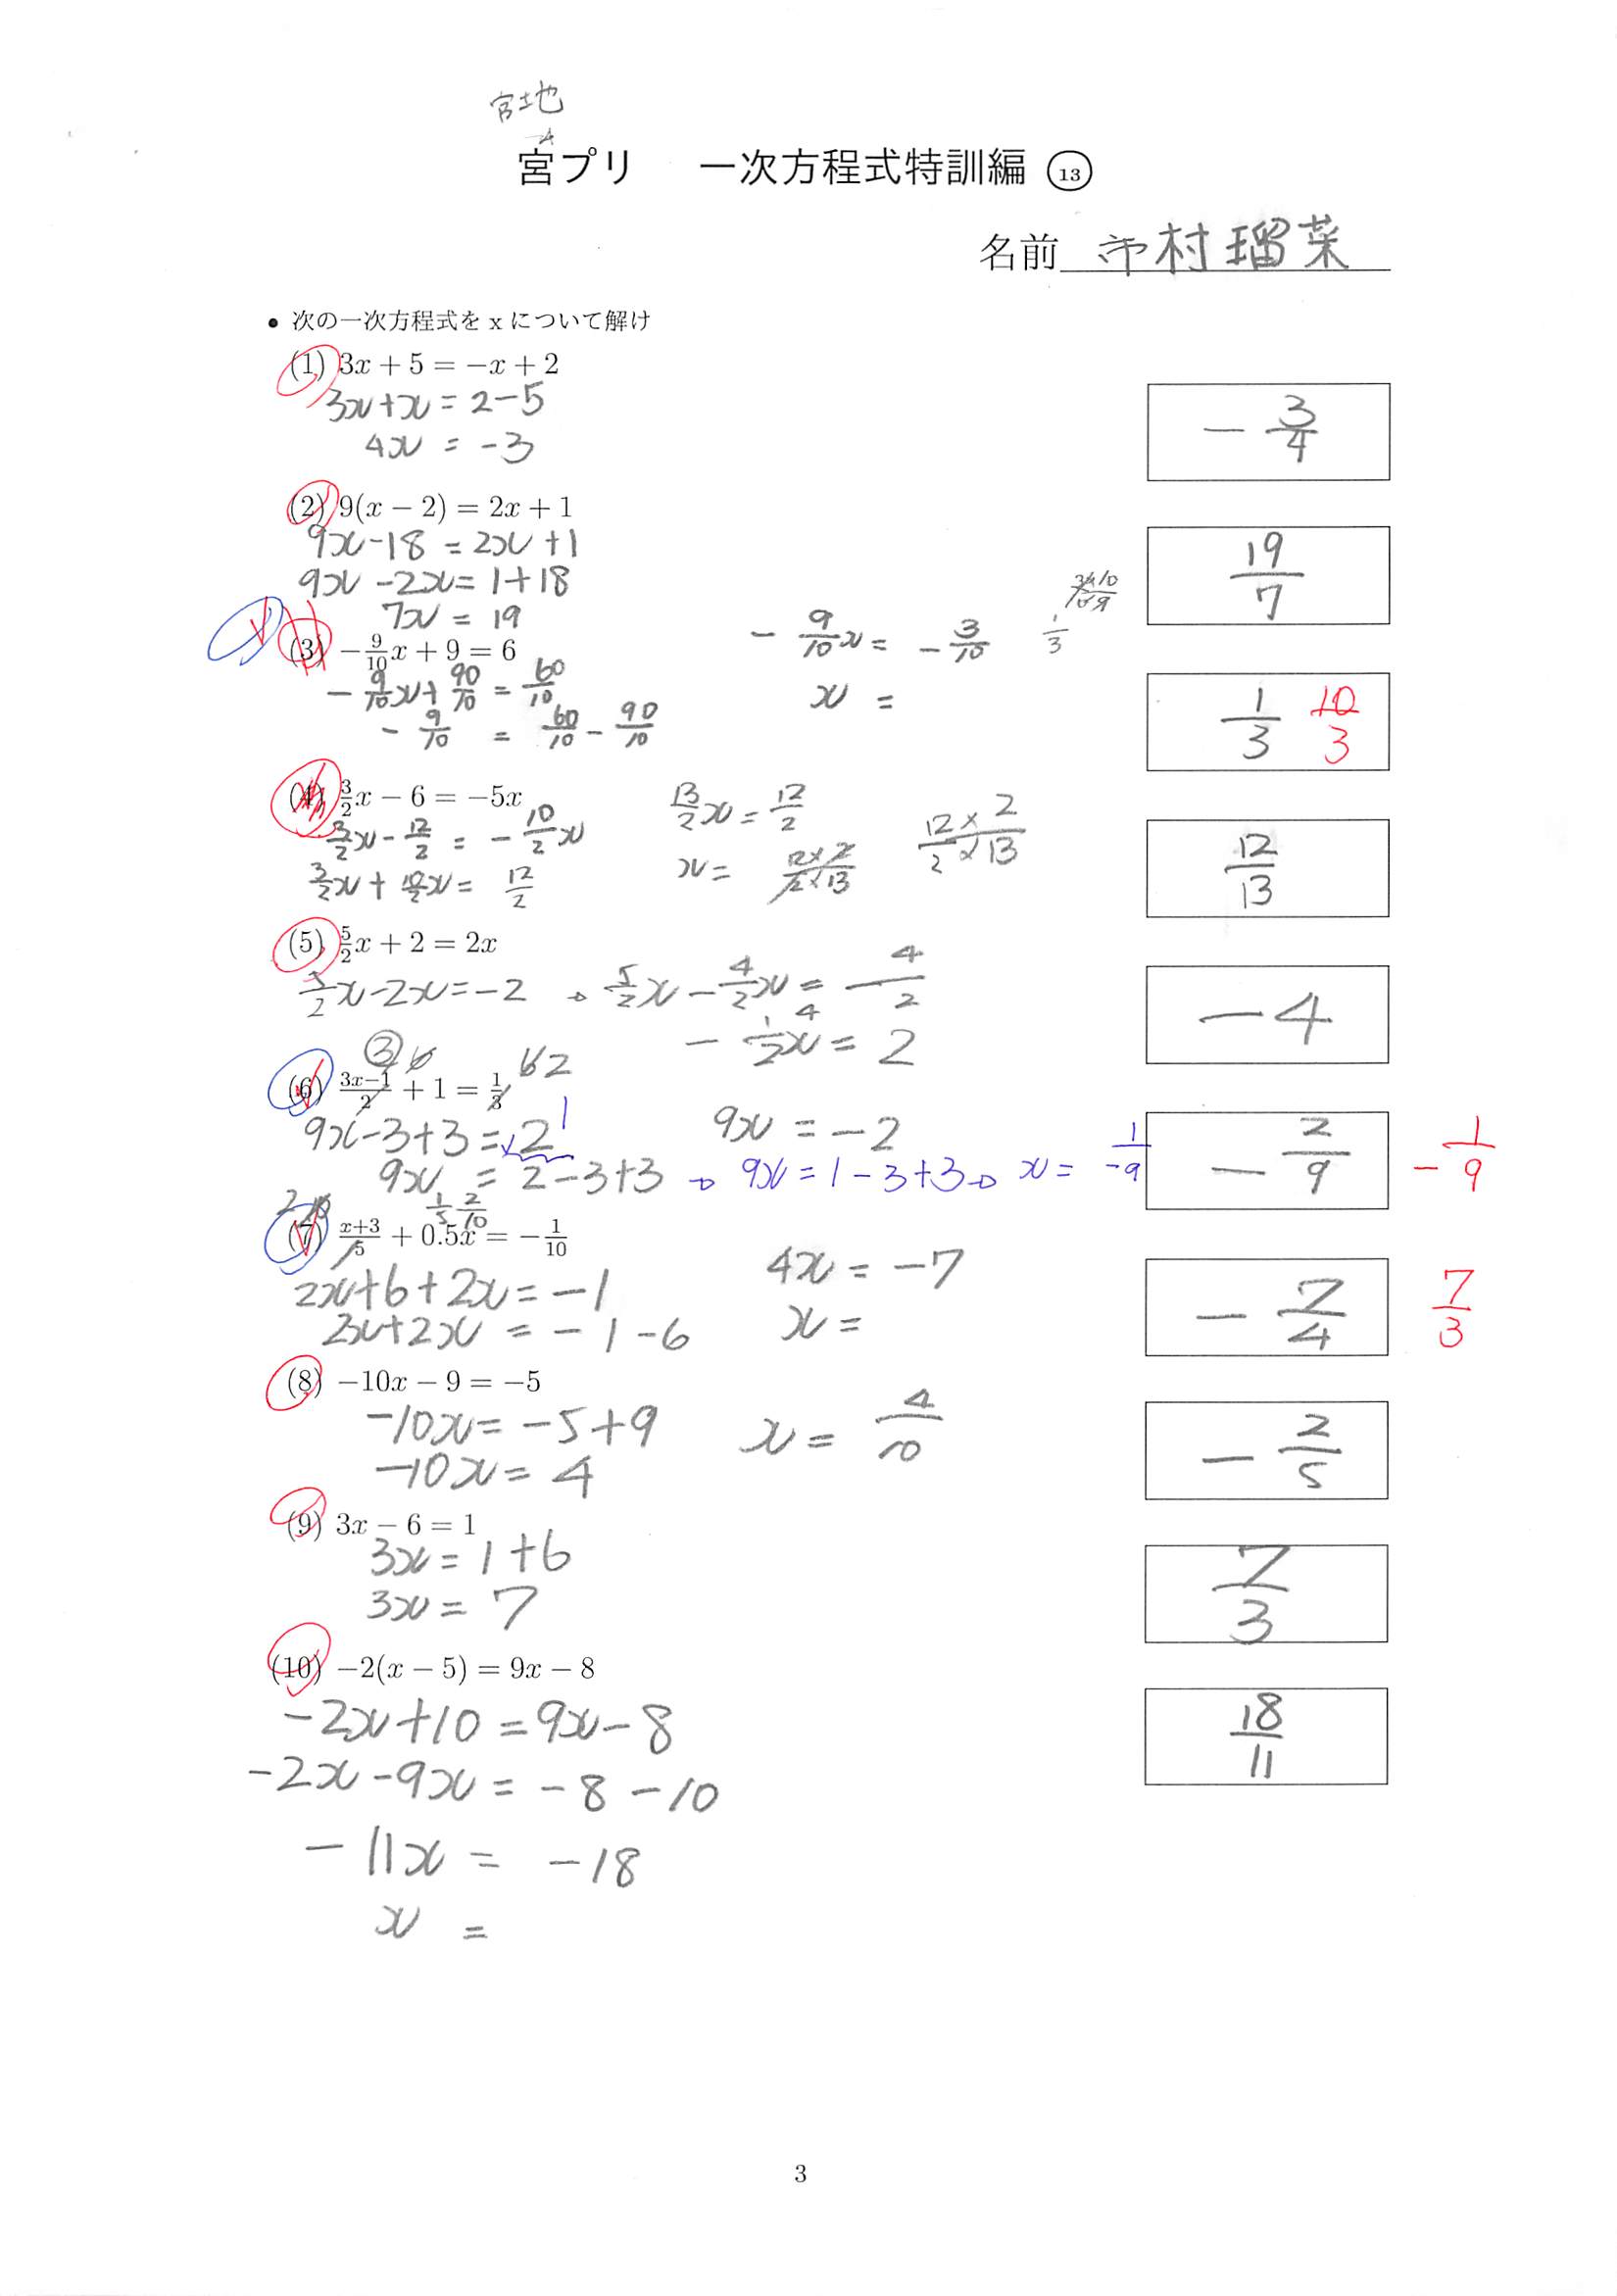 宮地
宮プリ 一次方程式特訓編 ⑬
名前 市村瑠菜
• 次の一次方程式を x について解け
(1) 3x + 5 = −x + 2
3x+x = 2−5
4x = −3
−3/4
(2) 9(x − 2) = 2x + 1
9x−18 = 2x+1
9x −2x = 1+18
7x = 19
19/7
(3) −9/10x + 9 = 6
−9/10x + 90/10 = 60/10
−9/10 = 60/10 − 90/10
−9/10x = −3/10
x =
1/3
1/3 10/3
(4) 3/2x − 6 = −5x
3/2x − 12/2 = −10/2x
3/2x + 10/2x = 12/2
13/2x = 12/2
x = 12×2/2×13
12×2/2×13
12/13
(5) 5/2x + 2 = 2x
5/2x−2x = −2 → 5/2x − 4/2x = −4/2
−1/2x = 2
4
−4
③ 6
(6) (3x−1)/2 + 1 = 1/3 62
9x−3+3 = 2 1
9x = 2−3+3 → 9x = 1−3+3 → x = 1/−9
9x = −2
−2/9 −1/9
2 10 1/5 2/10
(7) (x+3)/5 + 0.5x = −1/10
2x+6+2x = −1
2x+2x = −1−6
4x = −7
x =
−7/4 7/3
(8) −10x − 9 = −5
−10x = −5+9
−10x = 4
x = 4/10
−2/5
(9) 3x − 6 = 1
3x = 1+6
3x = 7
7/3
(10) −2(x − 5) = 9x − 8
−2x+10 = 9x−8
−2x−9x = −8−10
−11x = −18
x =
18/11
3